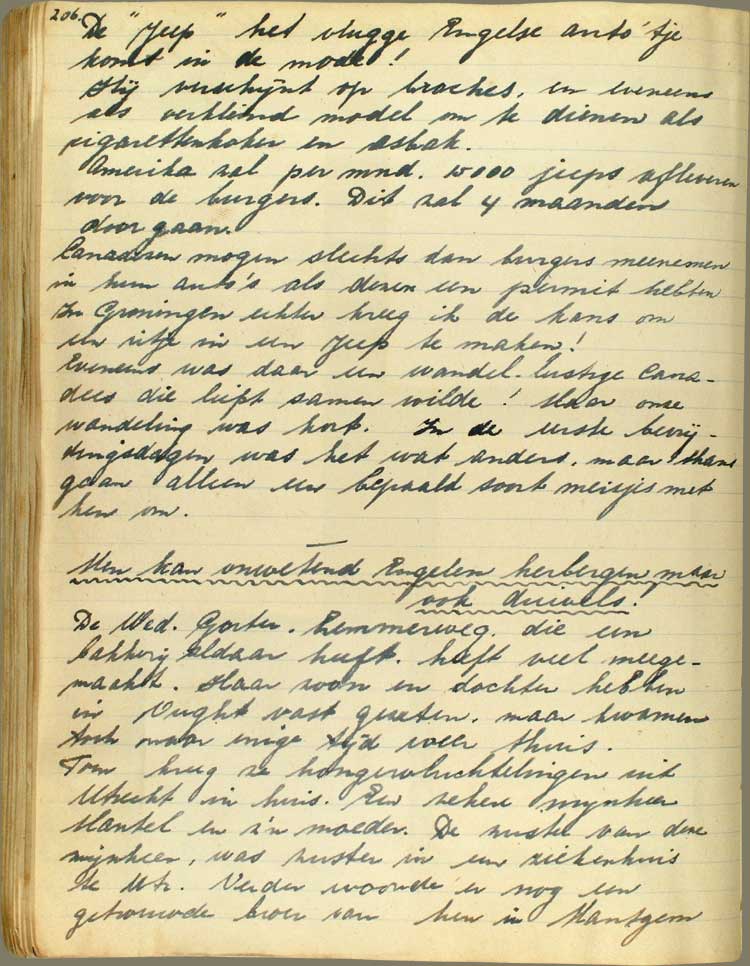 206.
De "Jeep" het vlugge Engelse auto'tje
komt in de mode!
Hij verschijnt op broches, en eveneens
als verkleind model om te dienen als
sigarettenkoker en asbak.
Amerika zal per mnd. 15000 jeeps afleveren
voor de burgers. Dit zal 4 maanden
doorgaan.
Canadezen mogen slechts dan burgers meenemen
in hun auto's als dezen een permit hebben
In Groningen echter kreeg ik de kans om
een ritje in een Jeep te maken!
Eveneens was daar een wandel-lustige Cana-
dees die liefst samen wilde! Maar onze
wandeling was kort. In de eerste bevrij-
dingsdagen was het wat anders, maar thans
gaan alleen een bepaald soort meisjes met
hen om.
Men kan onwetend Engelen herbergen maar
ook duivels!
De Wed. Gorter. Lemmerweg. die een
bakkerij aldaar heeft. heeft veel meege-
maakt. Haar zoon en dochter hebben
in Vught vast gezeten. maar kwamen
toch na enige tijd weer thuis.
Toen kreeg ze hongervluchtelingen uit
Utrecht in huis. Een zekere mynheer
Mantel en z'n moeder. De zuster van deze
mynheer, was zuster in een ziekenhuis
te Utr. Verder woonde er nog een
getrouwde broer van hen in